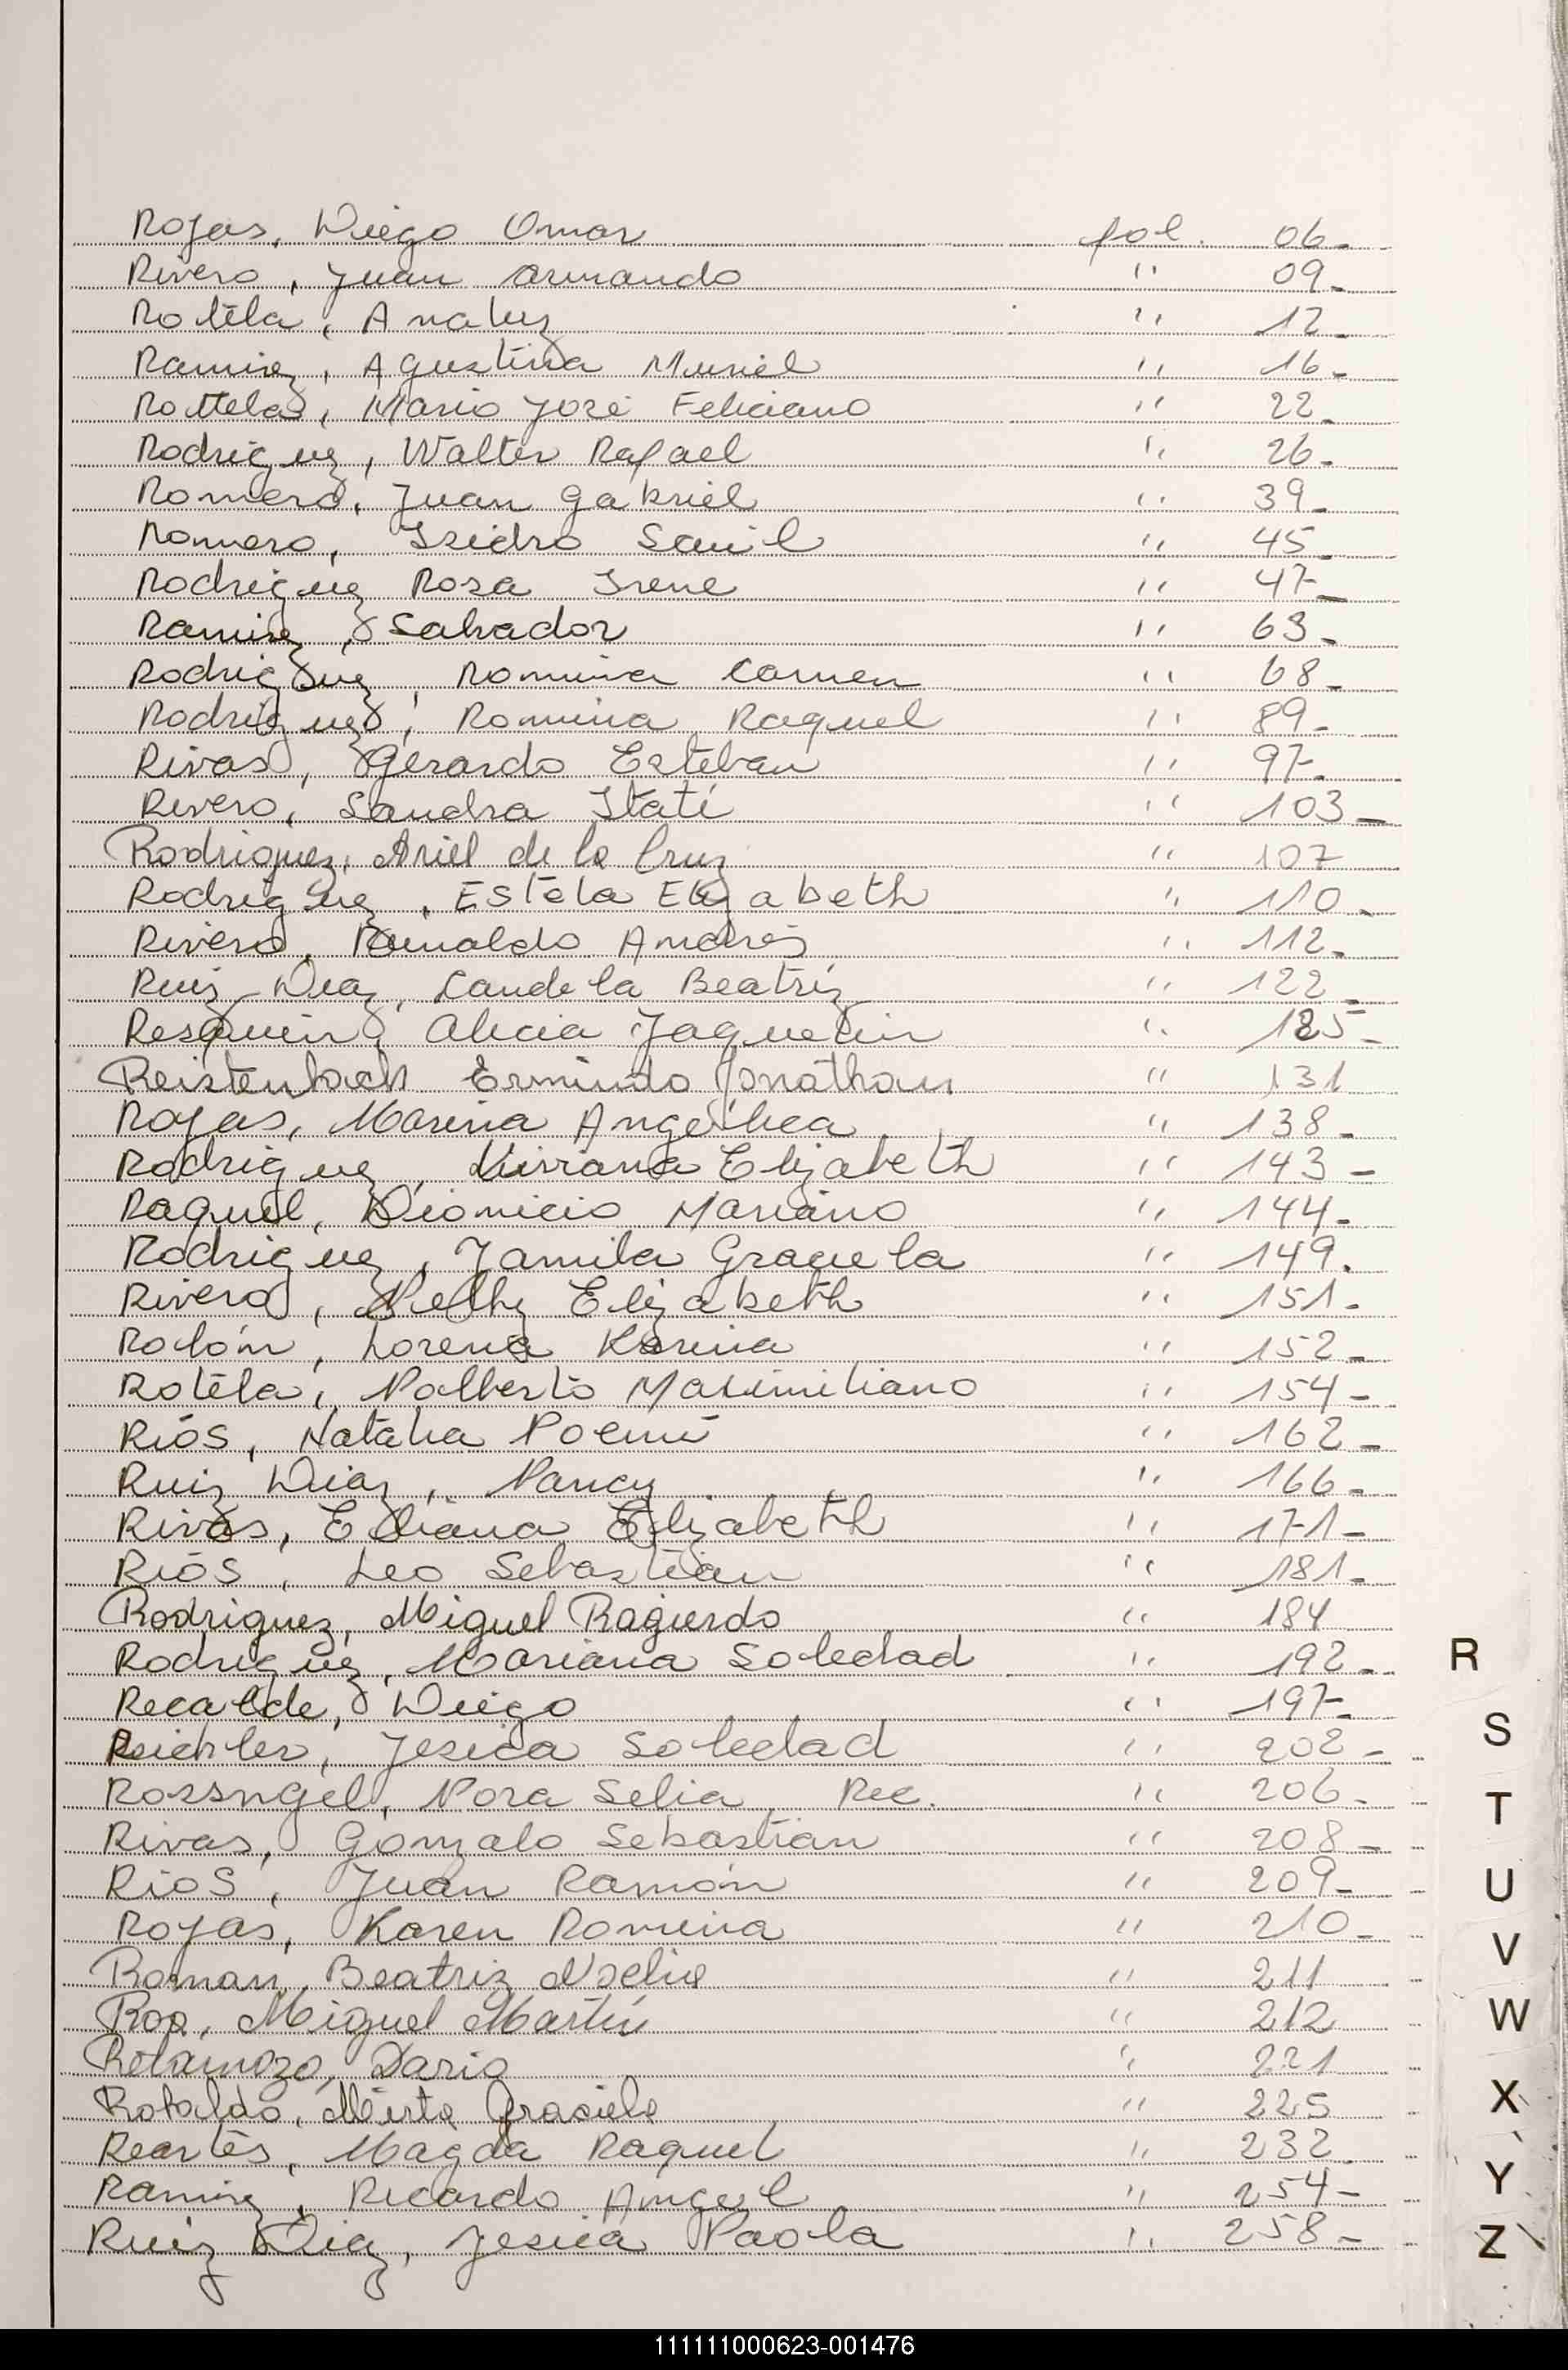 Rojas, Diego Omar fol. 06-
Rivero, Juan Armando " 09-
Rotela, Analuz " 12-
Ramirez, Agustina Muriel " 16-
Rottela, Mario José Feliciano " 22-
Rodriguez, Walter Rafael " 26-
Romero, Juan Gabriel " 39-
Romero, Isidro Saúl " 45-
Rodriguez Rosa Irene " 47-
Ramirez, Salvador " 63-
Rodriguez, Romina Carmen " 68-
Rodriguez, Romina Raquel " 89-
Rivas, Gerardo Esteban " 97-
Rivero, Sandra Itatí " 103-
Rodriguez, Ariel de la Cruz " 107
Rodriguez, Estela Elizabeth " 110-
Rivero, Reinaldo Andrés " 112-
Ruiz Diaz, Candela Beatriz " 122-
Resquin, Alicia Jaquelin " 125-
Reistenbach Ermindo Jonathan " 131
Rojas, Marina Angélica " 138-
Rodriguez, Viviana Elizabeth " 143-
Raquel, Dionicio Mariano " 144-
Rodriguez, Jamila Graciela " 149.
Rivero, Nelly Elizabeth " 151-
Rolón, Lorena Karina " 152-
Rotela, Nolberto Maximiliano " 154-
Riós, Natalia Noemí " 162-
Ruiz Diaz, Nancy " 166-
Rivas, Eliana Elizabeth " 171-
Riós, Leo Sebastián " 181-
Rodriguez, Miguel Ragierdo " 184
Rodriguez, Mariana Soledad " 192-
Recalde, Diego " 197-
Reichler, Jesica Soledad " 202-
Rossngel, Nora Selia Rec. " 206-
Rivas, Gonzalo Sebastian " 208-
Rios, Juan Ramón " 209-
Rojas, Karen Romina " 210-
Roman, Beatriz Noelia " 211
Roa, Miguel Martín " 212
Retamozo, Dario " 221
Robaldo, Mirta Graciela " 225
Reartes, Magda Raquel " 232
Ramirez, Ricardo Angel " 254-
Ruiz Diaz, Jesica Paola " 258-
R
S
T
U
V
W
X
Y
Z
111111000623-001476